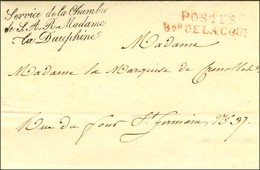 Service de la Chambre
de S.A.R. Madame
la Dauphine
POSTES
Madame
Madame la Marquise de
Rue du four St Germain, No